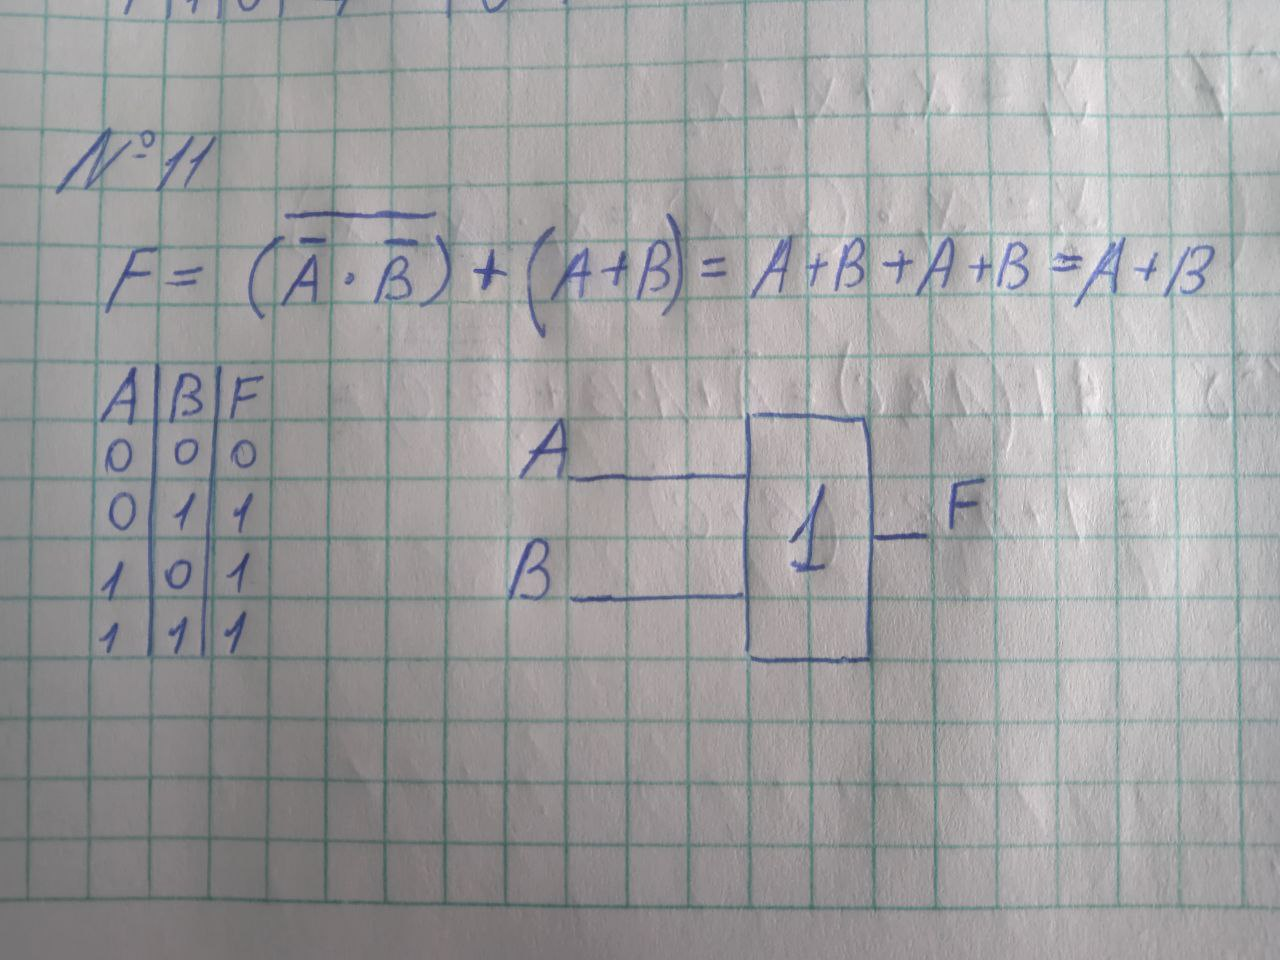 №11
F = (\overline{\overline{A} · \overline{B}}) + (A+B) = A+B+A+B = A+B
A | B | F
0 | 0 | 0
0 | 1 | 1
1 | 0 | 1
1 | 1 | 1
A
B
1
F